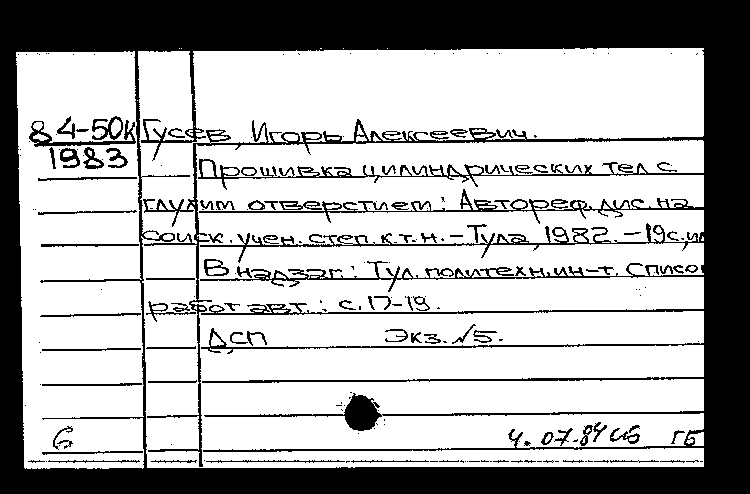 84-50к Гусев, Игорь Алексеевич.
1983 Прошивка цилиндрических тел с
глухим отверстием: Автореф. дис. на
соиск. учен. степ. к.т.н. - Тула, 1982. - 19с, ил
В надзаг.: Тул. политехн. ин-т. Список
работ авт.: с. 17-19.
ДСП Экз. №5.
6 4. 07.84 ГБ